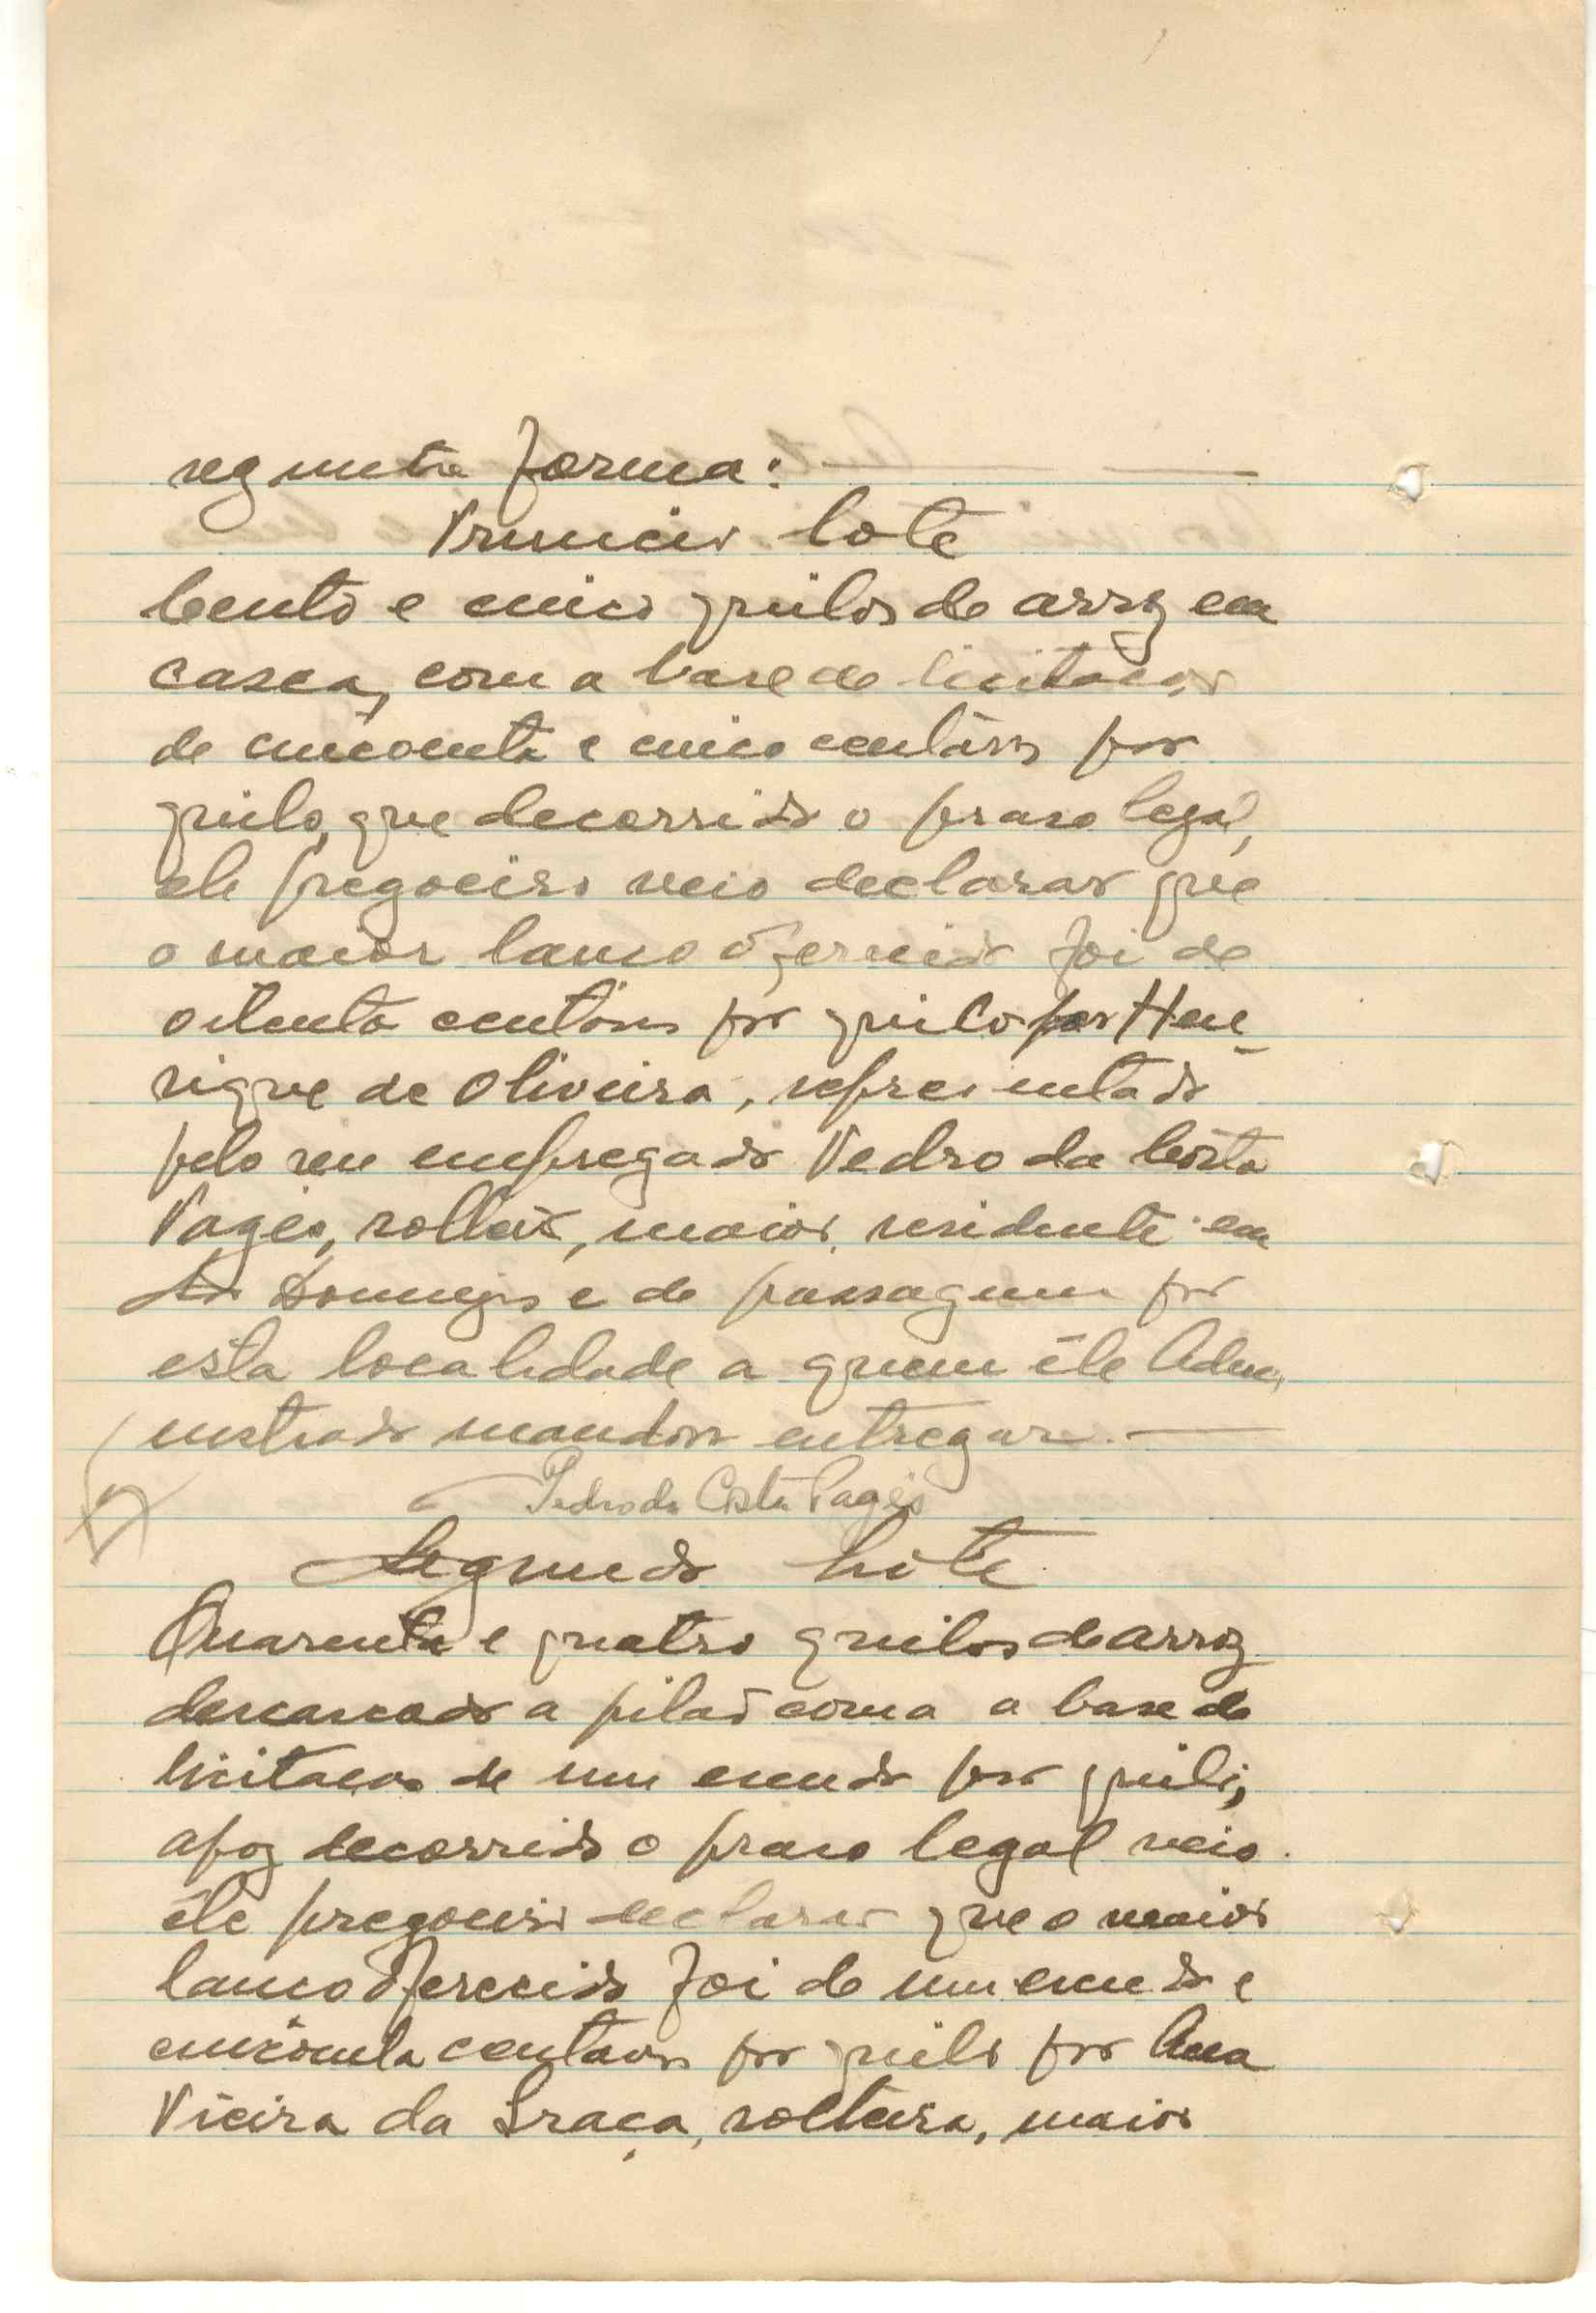 seguinte forma:
Primeiro lote
Cento e cinco quilos de arroz em
casca, com a base de licitação
de cincoenta e cinco centavos por
quilo, que decorrido o praso legal,
ele pregoeiro veio declarar que
o maior lanço oferecido foi de
oitenta centavos por quilo por Hen-
rique de Oliveira, representado
pelo seu empregado Pedro da Costa
Pagés, solteiro, maior, residente em
São Domingos e de passagem por
esta localidade a quem êle Admi-
nistrador mandou entregar.
Pedro da Costa Pagés
Segundo Lote
Quarenta e quatro quilos de arroz
descascado a pilão com a base de
licitação de um escudo por quilo,
apoz decorrido o praso legal veio
êle pregoeiro declarar que o maior
lanço oferecido foi de um escudo e
cincoenta centavos por quilo por Ana
Vieira da Graça, solteira, maior